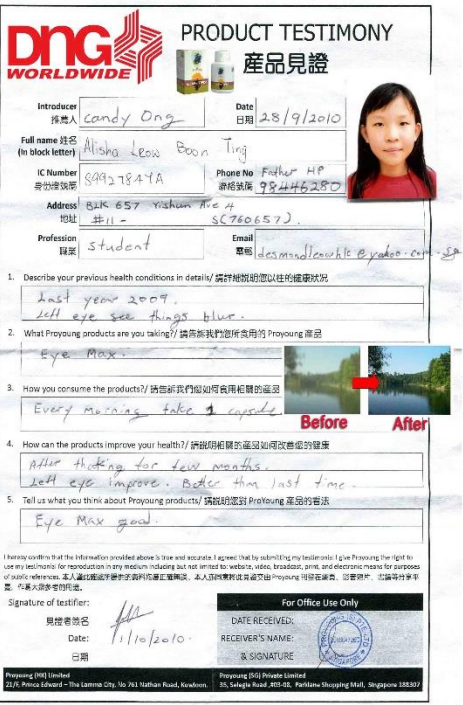 DNG
WORLDWIDE
PRODUCT TESTIMONY
產品見證
Introducer
推薦人
Candy Ong
Date
日期
28/9/2010
Full name 姓名
(In block letter)
Alisha Leow Boon Ting
IC Number
身份證號碼
S9927847A
Phone No
聯絡號碼
Father HP
98446280
Address
地址
BLK 657 Yishun Ave 4
#11-
S(760657).
Profession
職業
Student
Email
電郵
desmondleowhlc@yahoo.com.sg
1. Describe your previous health conditions in details/ 請詳細說明您以往的健康狀況
Last year 2009.
Left eye see things blur.
2. What Proyoung products are you taking?/ 請告訴我們您所食用的 Proyoung 產品
Eye Max.
3. How you consume the products?/ 請告訴我們您如何食用相關的產品
Every morning take 1 capsule
Before
After
4. How can the products improve your health?/ 請說明相關的產品如何改善您的健康
After for few months.
Left eye improve. Better than last time.
5. Tell us what you think about Proyoung products/ 請說明您對 ProYoung 產品的看法
Eye Max good.
I hereby confirm that the information provided above is true and accurate. I agreed that by submitting my testimonial I give Proyoung the right to
use my testimonial for reproduction in any medium including but not limited to: website, video, broadcast, print, and electronic means for purposes
of public references.
Signature of testifier:
見證者簽名
Date:
日期
1/10/2010.
For Office Use Only
DATE RECEIVED:
RECEIVER'S NAME:
& SIGNATURE
Proyoung (HK) Limited
21/F, Prince Edward – The Lamma City, No 761 Nathan Road, Kowloon.
Proyoung (SG) Private Limited
35, Selegie Road ,#03-08, Parklane Shopping Mall, Singapore 188307